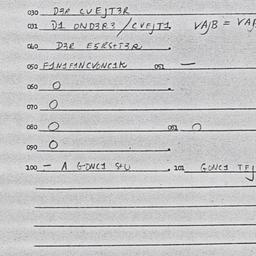 030 D3R CVEJT3R
031 D1 OND3R3 / CVEJT1 VAJB = VAF
040 D3R ESRST3R
050 F1N1F1NCVGNC1K 051 —
060 O
070 O
080 O 081 O
090 O
100 — A GONC1 STU 101 GONC1 TFJ